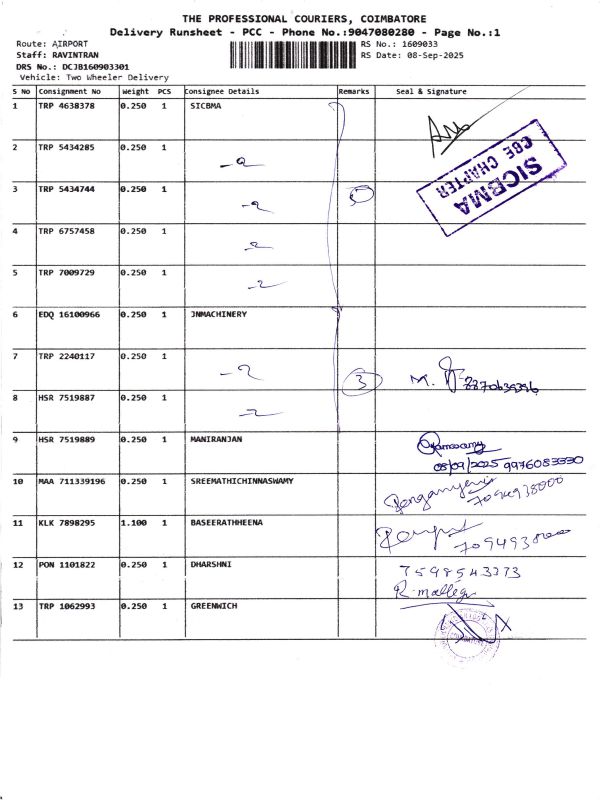 THE PROFESSIONAL COURIERS, COIMBATORE
Delivery Runsheet - PCC - Phone No.:9047080280 - Page No.:1
Route: AIRPORT
Staff: RAVINTRAN
DRS No.: DCJB160903301
Vehicle: Two Wheeler Delivery
RS No.: 1609033
RS Date: 08-Sep-2025
S No Consignment No Weight PCS Consignee Details Remarks Seal & Signature
1 TRP 4638378 0.250 1 SICBMA
SICBMA
CBE CHAPTER
2 TRP 5434285 0.250 1
3 TRP 5434744 0.250 1 5
4 TRP 6757458 0.250 1
5 TRP 7009729 0.250 1
6 EDQ 16100966 0.250 1 JNMACHINERY
7 TRP 2240117 0.250 1 3 M.
8 HSR 7519887 0.250 1
9 HSR 7519889 0.250 1 MANIRANJAN
08/09/2025 9976083330
10 MAA 711339196 0.250 1 SREEMATHICHINNASWAMY
7094938000
11 KLK 7898295 1.100 1 BASEERATHHEENA
12 PON 1101822 0.250 1 DHARSHNI 7598543373
13 TRP 1062993 0.250 1 GREENWICH